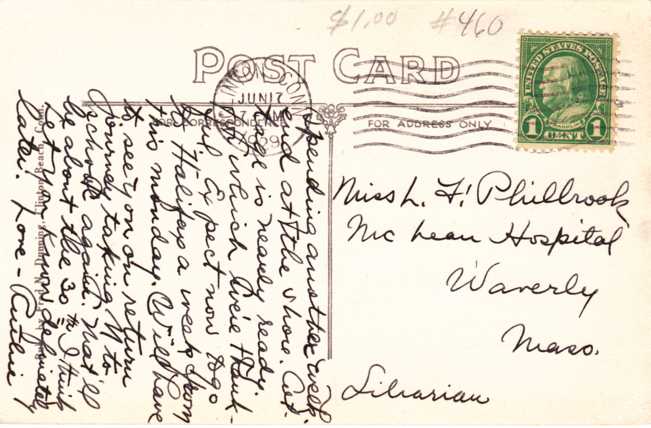 $1.00 #460
POST CARD
CLINTON, CONN.
JUN 17
1929
FOR CORRESPONDENCE
FOR ADDRESS ONLY
UNITED STATES POSTAGE
1 CENT 1
Spending another week-
end at the shore. Cot-
tage is nearly ready
for which we're thank-
ful. Expect now to go
to Halifax a week from
this monday. Will have
to see you on return
journey taking M to
school again. That'll
be about the 30th I think
Let you know definately
later. Love -
Miss L. F. Philbrook
Mc Lean Hospital
Waverly
Mass.
Librarian
by Fred N. Dunning, Clinton Beach, Conn.